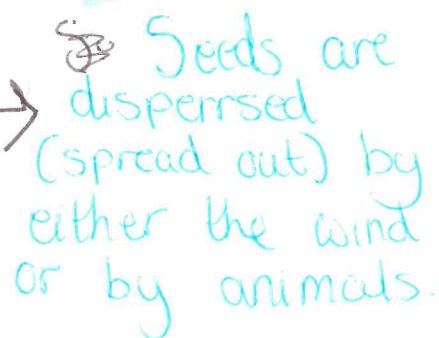 Seeds are
disperrsed
(spread out) by
either the wind
or by animals.